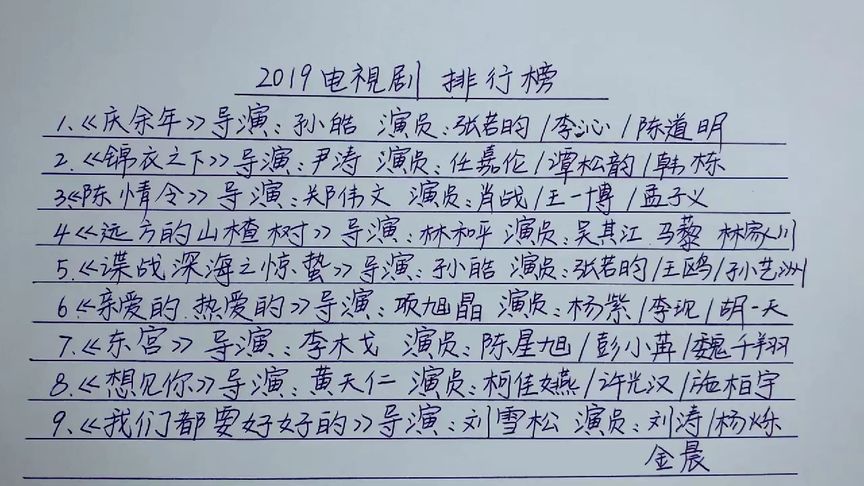 2019电视剧 排行榜
1.《庆余年》导演:孙皓 演员:张若昀/李沁/陈道明
2.《锦衣之下》导演:尹涛 演员:任嘉伦/谭松韵/韩栋
3《陈情令》导演:郑伟文 演员:肖战/王一博/孟子义
4《远方的山楂树》导演:林和平 演员:吴其江 马藜 林家川
5.《谍战深海之惊蛰》导演:孙皓 演员:张若昀/王鸥/孙艺洲
6《亲爱的.热爱的》导演:项旭晶 演员:杨紫/李现/胡一天
7.《东宫》导演:李木戈 演员:陈星旭/彭小苒/魏千翔
8.《想见你》导演:黄天仁 演员:柯佳嬿/许光汉/施柏宇
9.《我们都要好好的》导演:刘雪松 演员:刘涛/杨烁
金晨